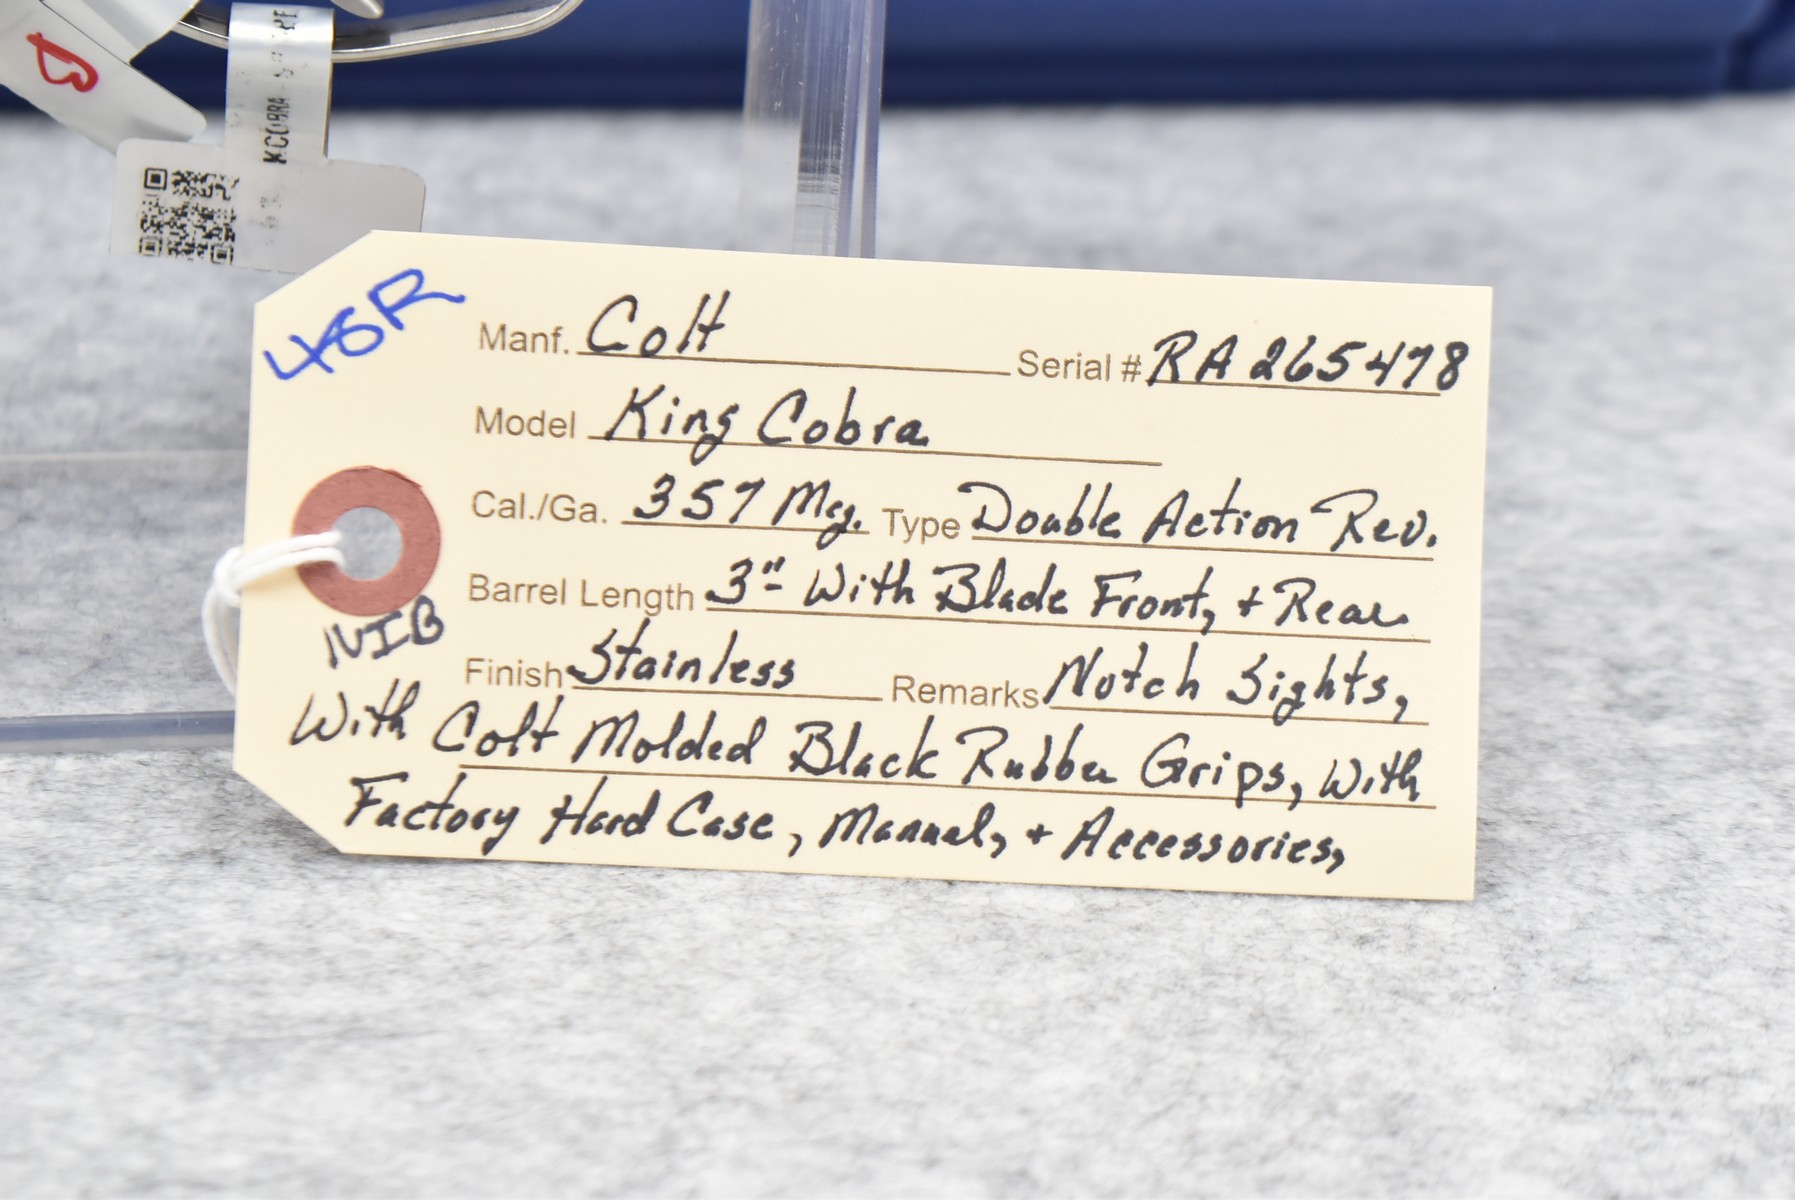 B
KCOBRA
48R
Manf. Colt Serial # RA265478
Model King Cobra
Cal./Ga. 357 Mag. Type Double Action Rev.
Barrel Length 3" With Blade Front, + Rear
NIB
Finish Stainless Remarks Notch Sights,
With Colt Molded Black Rubber Grips, With
Factory Hard Case, Manual, + Accessories,